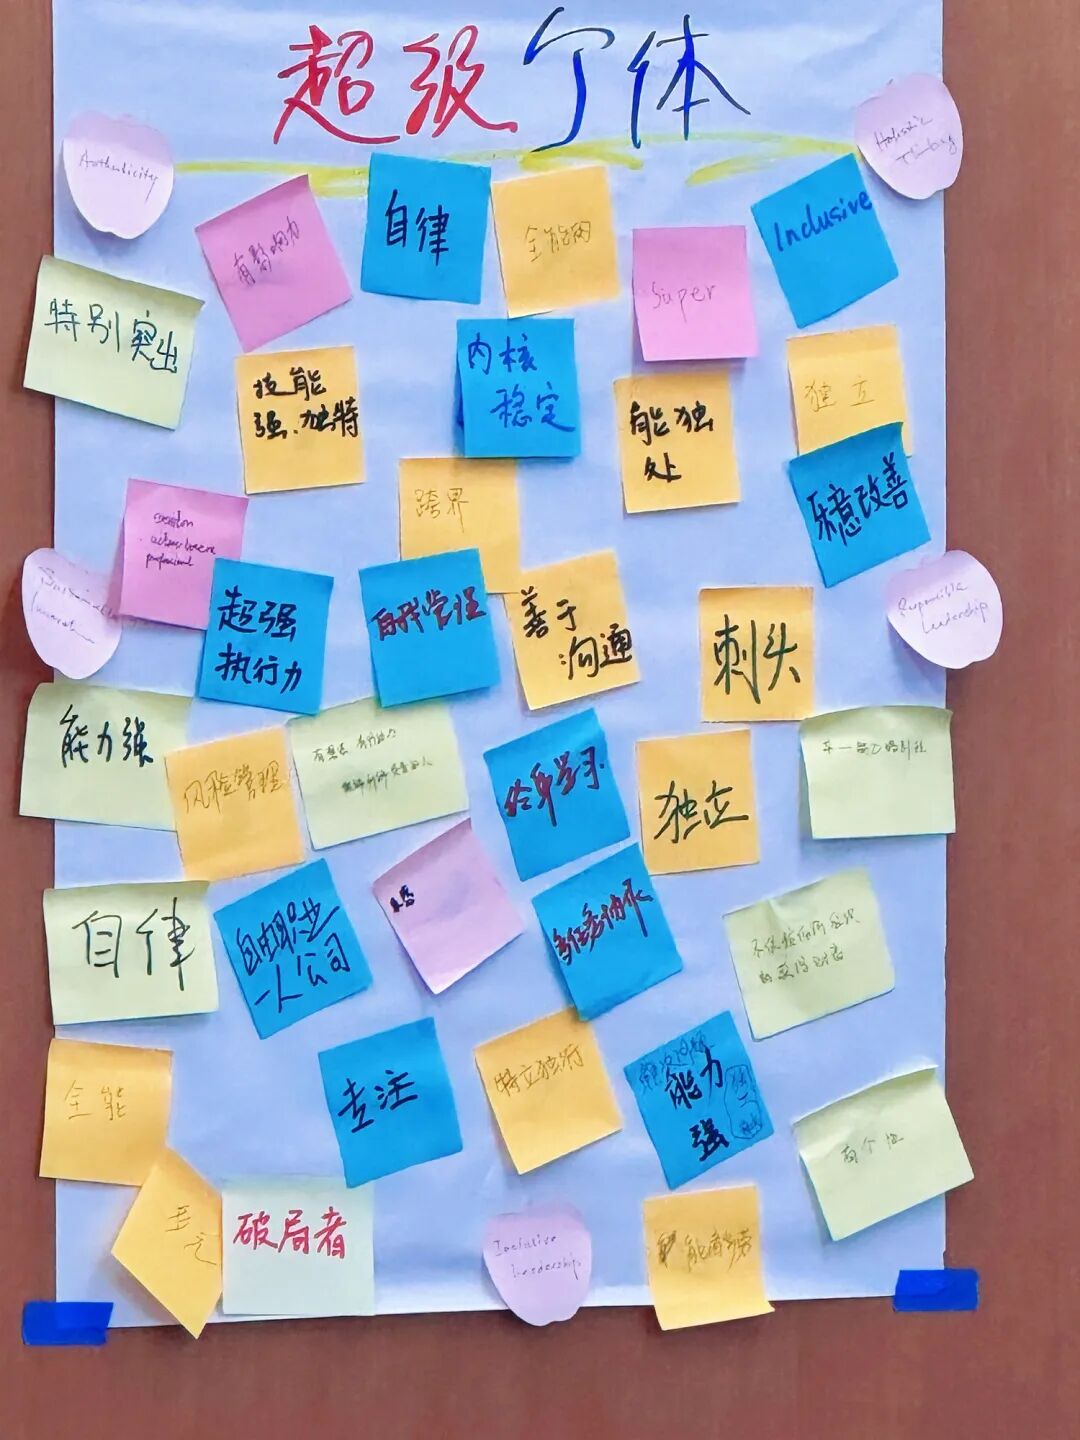 超级个体
Authenticity
Holistic
Thinking
有影响力
自律
全能的
Super
Inclusive
特别突出
技能
强、独特
内核
稳定
能独
处
独立
乐意改善
跨界
professional
超强
执行力
自我管理
善于
沟通
刺头
Responsible
Leadership
能力强
风险管理
有想法 有行动的人
终身学习
独立
自律
自由职业
一人公司
多任务协作
全能
专注
特立独行
解决问题
能力
强
独立
有个性
勇气
破局者
Inclusive
Leadership